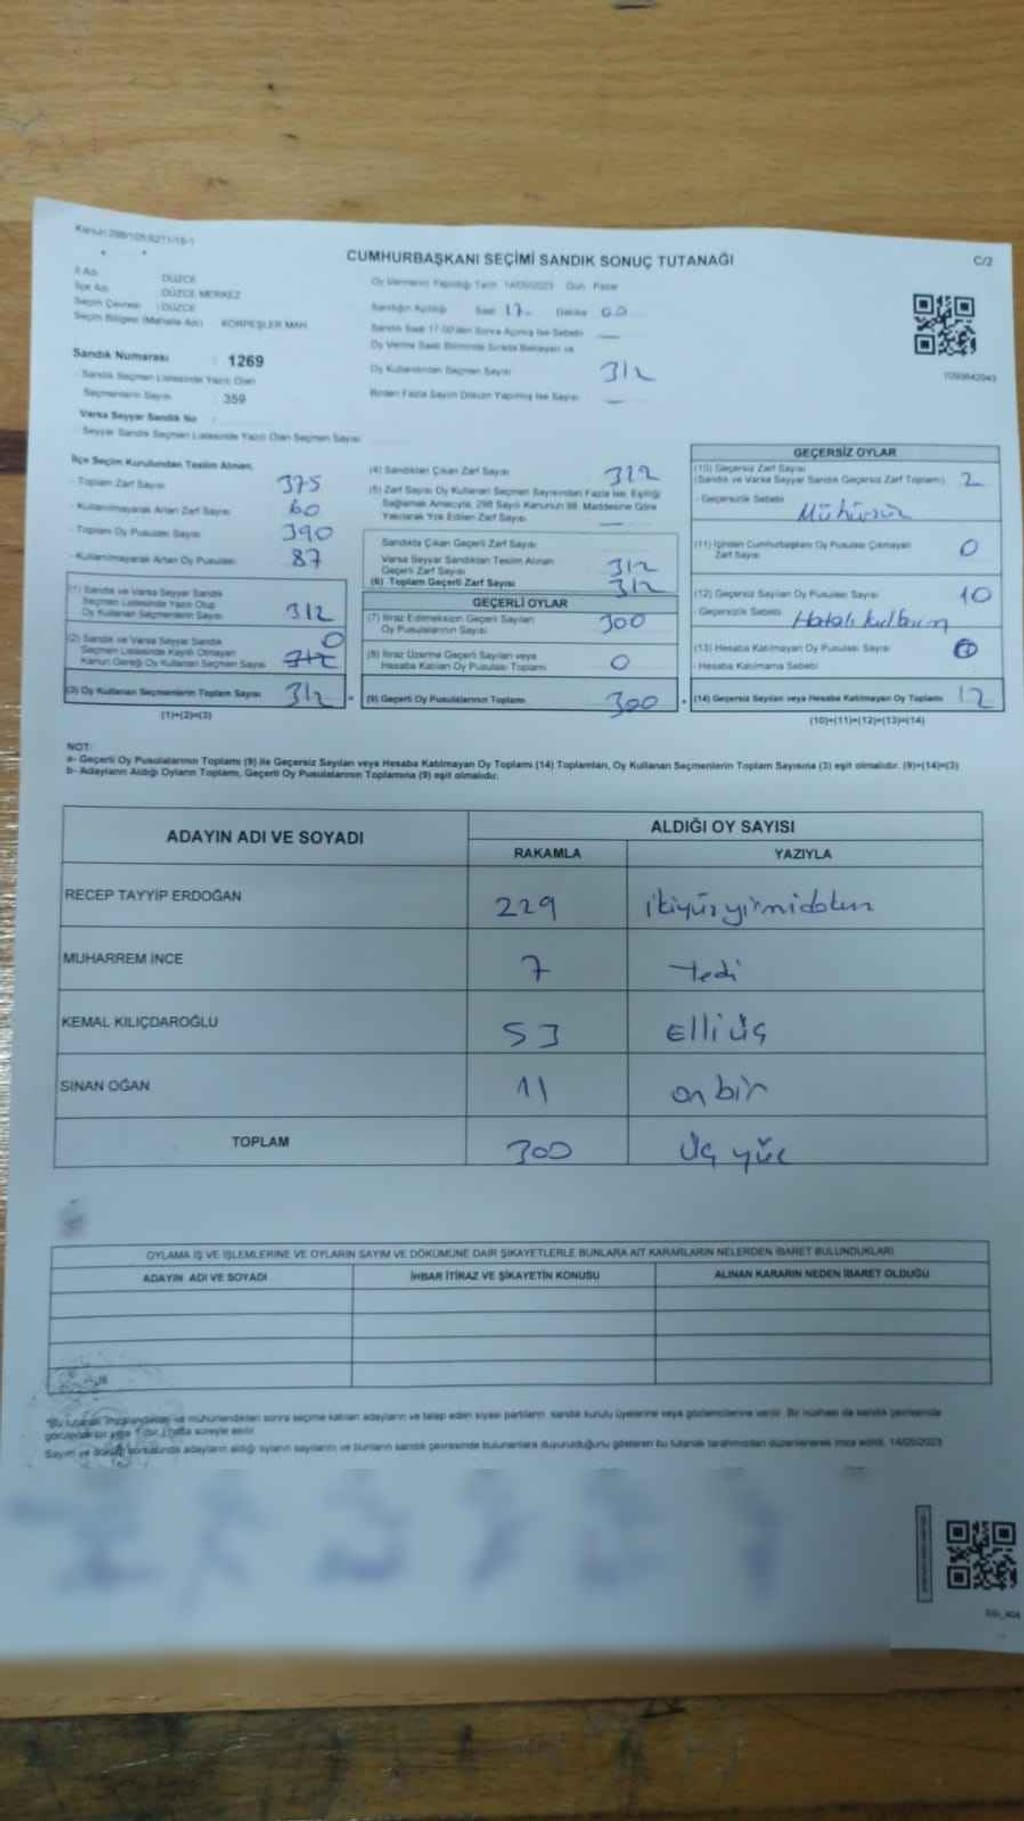 CUMHURBAŞKANI SEÇİMİ SANDIK SONUÇ TUTANAĞI
C/2
İl Adı : DÜZCE
İlçe Adı : DÜZCE MERKEZ
Seçim Çevresi : DÜZCE
Seçim Bölgesi (Mahalle Adı) : KÖRPEŞLER MAH.
Oy Vermenin Yapıldığı Tarih 14/05/2023 Gün Pazar
Sandığın Açılışı Saat 17 Dakika 00
Sandık Saat 17:00'den Sonra Açılmış İse Sebebi
Oy Kullanılmdan Seçmen Sayısı 312
Birden Fazla Sayım Döküm Yapılmış İse Sayısı
Sandık Numarası : 1269
Sandık Seçmen Listesinde Yazılı Olan
Seçmenlerin Sayısı 359
Varsa Seyyar Sandık No :
Seyyar Sandık Seçmen Listesinde Yazılı Olan Seçmen Sayısı
İlçe Seçim Kurulundan Teslim Alınan;
- Toplam Zarf Sayısı 375
- Kullanılmayarak Artan Zarf Sayısı 60
- Toplam Oy Pusulası Sayısı 390
- Kullanılmayarak Artan Oy Pusulası 87
(1) Sandık ve Varsa Seyyar Sandık
Seçmen Listesinde Yazılı Olup
Oy Kullanan Seçmenlerin Sayısı 312
(2) Sandık ve Varsa Seyyar Sandık
Seçmen Listesinde Kayıtlı Olmayan
Kanun Gereği Oy Kullanan Seçmen Sayısı 0
(3) Oy Kullanan Seçmenlerin Toplam Sayısı 312
(1)+(2)=(3)
(4) Sandıktan Çıkan Zarf Sayısı 312
(5) Zarf Sayısı Oy Kullanan Seçmen Sayısından Fazla İse, Eşitliği
Sağlamak Amacıyla, 298 Sayılı Kanunun 98. Maddesine Göre
Yakılarak Yok Edilen Zarf Sayısı
Sandıkta Çıkan Geçerli Zarf Sayısı
Varsa Seyyar Sandıktan Teslim Alınan
Geçerli Zarf Sayısı 312
(6) Toplam Geçerli Zarf Sayısı 312
GEÇERLİ OYLAR
(7) İtiraz Edilmeksizin Geçerli Sayılan
Oy Pusulalarının Sayısı 300
(8) İtiraz Üzerine Geçerli Sayılan veya
Hesaba Katılan Oy Pusulası Toplamı 0
(9) Geçerli Oy Pusulalarının Toplamı 300
GEÇERSİZ OYLAR
(10) Geçersiz Zarf Sayısı
(Sandık ve Varsa Seyyar Sandık Geçersiz Zarf Toplamı) 2
- Geçersizlik Sebebi Mühürsüz
(11) İçinden Cumhurbaşkanı Oy Pusulası Çıkmayan
Zarf Sayısı 0
(12) Geçersiz Sayılan Oy Pusulası Sayısı 10
- Geçersizlik Sebebi Hatalı kullanım
(13) Hesaba Katılmayan Oy Pusulası Sayısı
- Hesaba Katılmama Sebebi
(14) Geçersiz Sayılan veya Hesaba Katılmayan Oy Toplamı 12
(10)+(11)+(12)+(13)=(14)
NOT:
a- Geçerli Oy Pusulalarının Toplamı (9) ile Geçersiz Sayılan veya Hesaba Katılmayan Oy Toplamı (14) Toplamları, Oy Kullanan Seçmenlerin Toplam Sayısına (3) eşit olmalıdır. (9)+(14)=(3)
b- Adayların Aldığı Oyların Toplamı, Geçerli Oy Pusulalarının Toplamına (9) eşit olmalıdır.
ADAYIN ADI VE SOYADI ALDIĞI OY SAYISI
RAKAMLA YAZIYLA
RECEP TAYYİP ERDOĞAN 229 ikiyüzyirmidokuz
MUHARREM İNCE 7 Yedi
KEMAL KILIÇDAROĞLU 53 Elli üç
SİNAN OĞAN 11 on bir
TOPLAM 300 Üç yüz
OYLAMA İŞ VE İŞLEMLERİNE VE OYLARIN SAYIM VE DÖKÜMÜNE DAİR ŞİKAYETLERLE BUNLARA AİT KARARLARIN NELERDEN İBARET BULUNDUKLARI
ADAYIN ADI VE SOYADI İHBAR İTİRAZ VE ŞİKAYETİN KONUSU ALINAN KARARIN NEDEN İBARET OLDUĞU